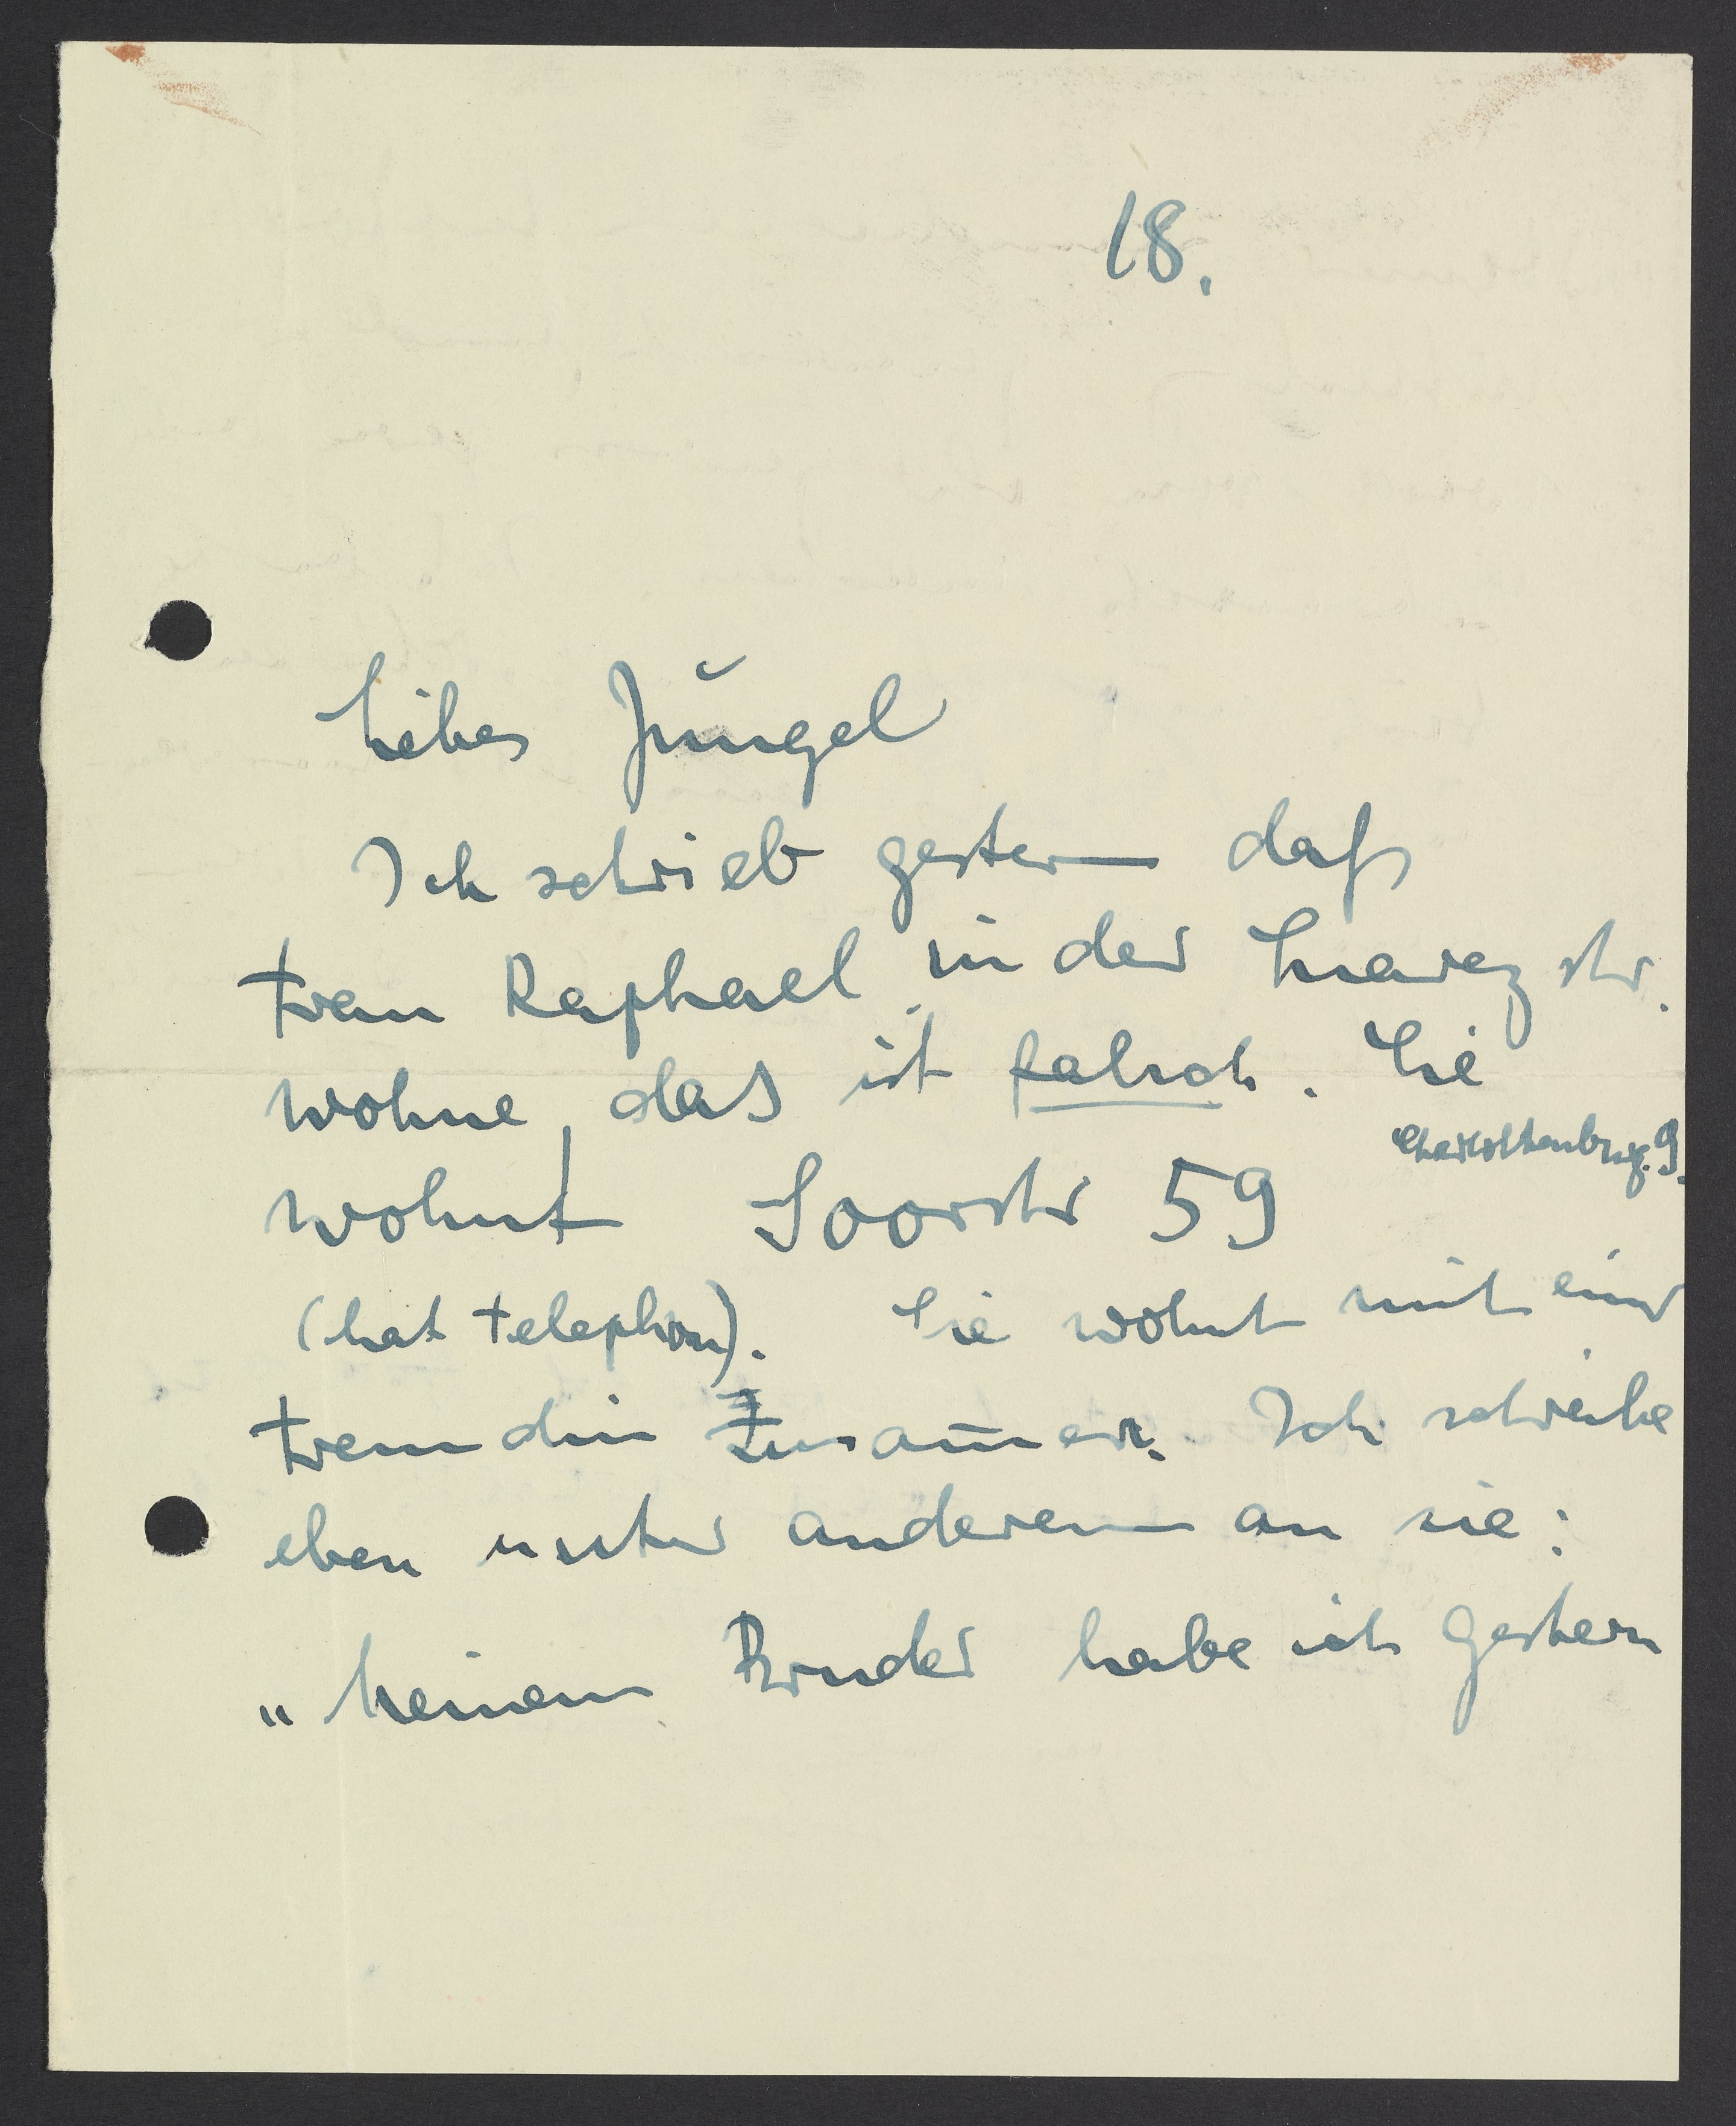 18.
Liebes Jungel
Ich schrieb gestern daß
Frau Raphael in der Suarezstr.
wohne, das ist falsch. Sie
Charlottenburg. 9.
wohnt Soorstr 59
(hat Telephon). Sie wohnt mit einer
Freundin zusam̅en. Ich schreibe
eben unter anderem an sie:
„Meinem Bruder habe ich gestern